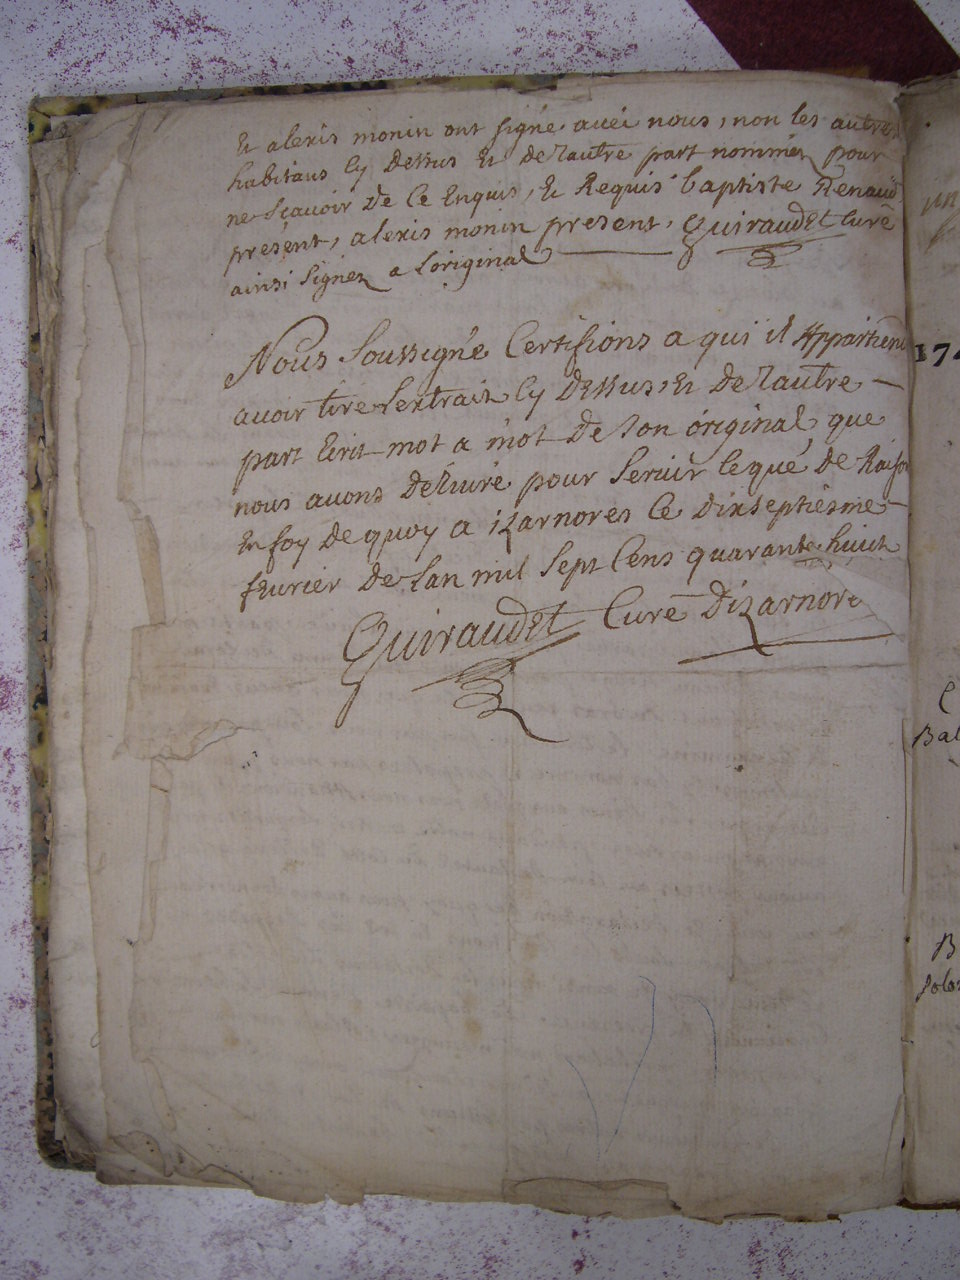 Et alexis monin ont signé avec nous, non les autres
habitans cy dessus Et de Lautre part nommez pour
ne sçavoir de ce Enquis, Et Requis baptiste Renaud
présent, alexis monin present, Guiraudet Curé
ainsi signez a Loriginal
Nous soussigné Certifions a qui il Appartiend
avoir tire Lextrait cy dessus, Et de Lautre
part Ecrit mot a mot de son original que
nous avons delivré pour servir le que de Raison
En foy de quoy a izarnores ce dixseptiesme
fevrier de Lan mil sept Cens quarante huict
Guiraudet Curé Dizarnore
17
Bal
B